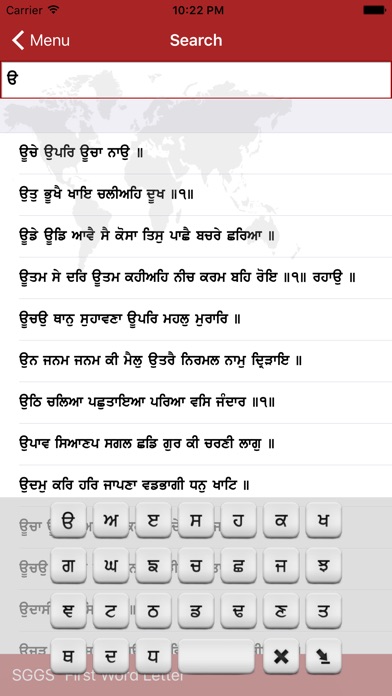 Carrier 10:22 PM
Menu Search
ੳ
ਊਚੇ ਉਪਰਿ ਊਚਾ ਨਾਉ ॥
ਉਤੁ ਭੂਖੈ ਖਾਇ ਚਲੀਅਹਿ ਦੂਖ ॥੧॥
ਊਡੇ ਊਡਿ ਆਵੈ ਸੈ ਕੋਸਾ ਤਿਸੁ ਪਾਛੈ ਬਚਰੇ ਛਰਿਆ ॥
ਊਤਮ ਸੇ ਦਰਿ ਊਤਮ ਕਹੀਅਹਿ ਨੀਚ ਕਰਮ ਬਹਿ ਰੋਇ ॥੧॥ ਰਹਾਉ ॥
ਊਚਉ ਥਾਨੁ ਸੁਹਾਵਣਾ ਊਪਰਿ ਮਹਲੁ ਮੁਰਾਰਿ ॥
ਉਨ ਜਨਮ ਜਨਮ ਕੀ ਮੈਲੁ ਉਤਰੈ ਨਿਰਮਲ ਨਾਮੁ ਦ੍ਰਿੜਾਇ ॥
ਉਠਿ ਚਲਿਆ ਪਛੁਤਾਇਆ ਪਰਿਆ ਵਸਿ ਜੰਦਾਰ ॥੧॥
ਉਪਾਵ ਸਿਆਣਪ ਸਗਲ ਛਡਿ ਗੁਰ ਕੀ ਚਰਣੀ ਲਾਗੁ ॥
ਉਦਮੁ ਕਰਿ ਹਰਿ ਜਾਪਣਾ ਵਡਭਾਗੀ ਧਨੁ ਖਾਟਿ ॥
ਊਚਾ
ੳ ਅ ੲ ਸ ਹ ਕ ਖ
ਊਚਉ
ਗ ਘ ਙ ਚ ਛ ਜ ਝ
ਉਦਾਸੀ
ਞ ਟ ਠ ਡ ਢ ਣ ਤ
ਥ ਦ ਧ
SGGS First Word Letter